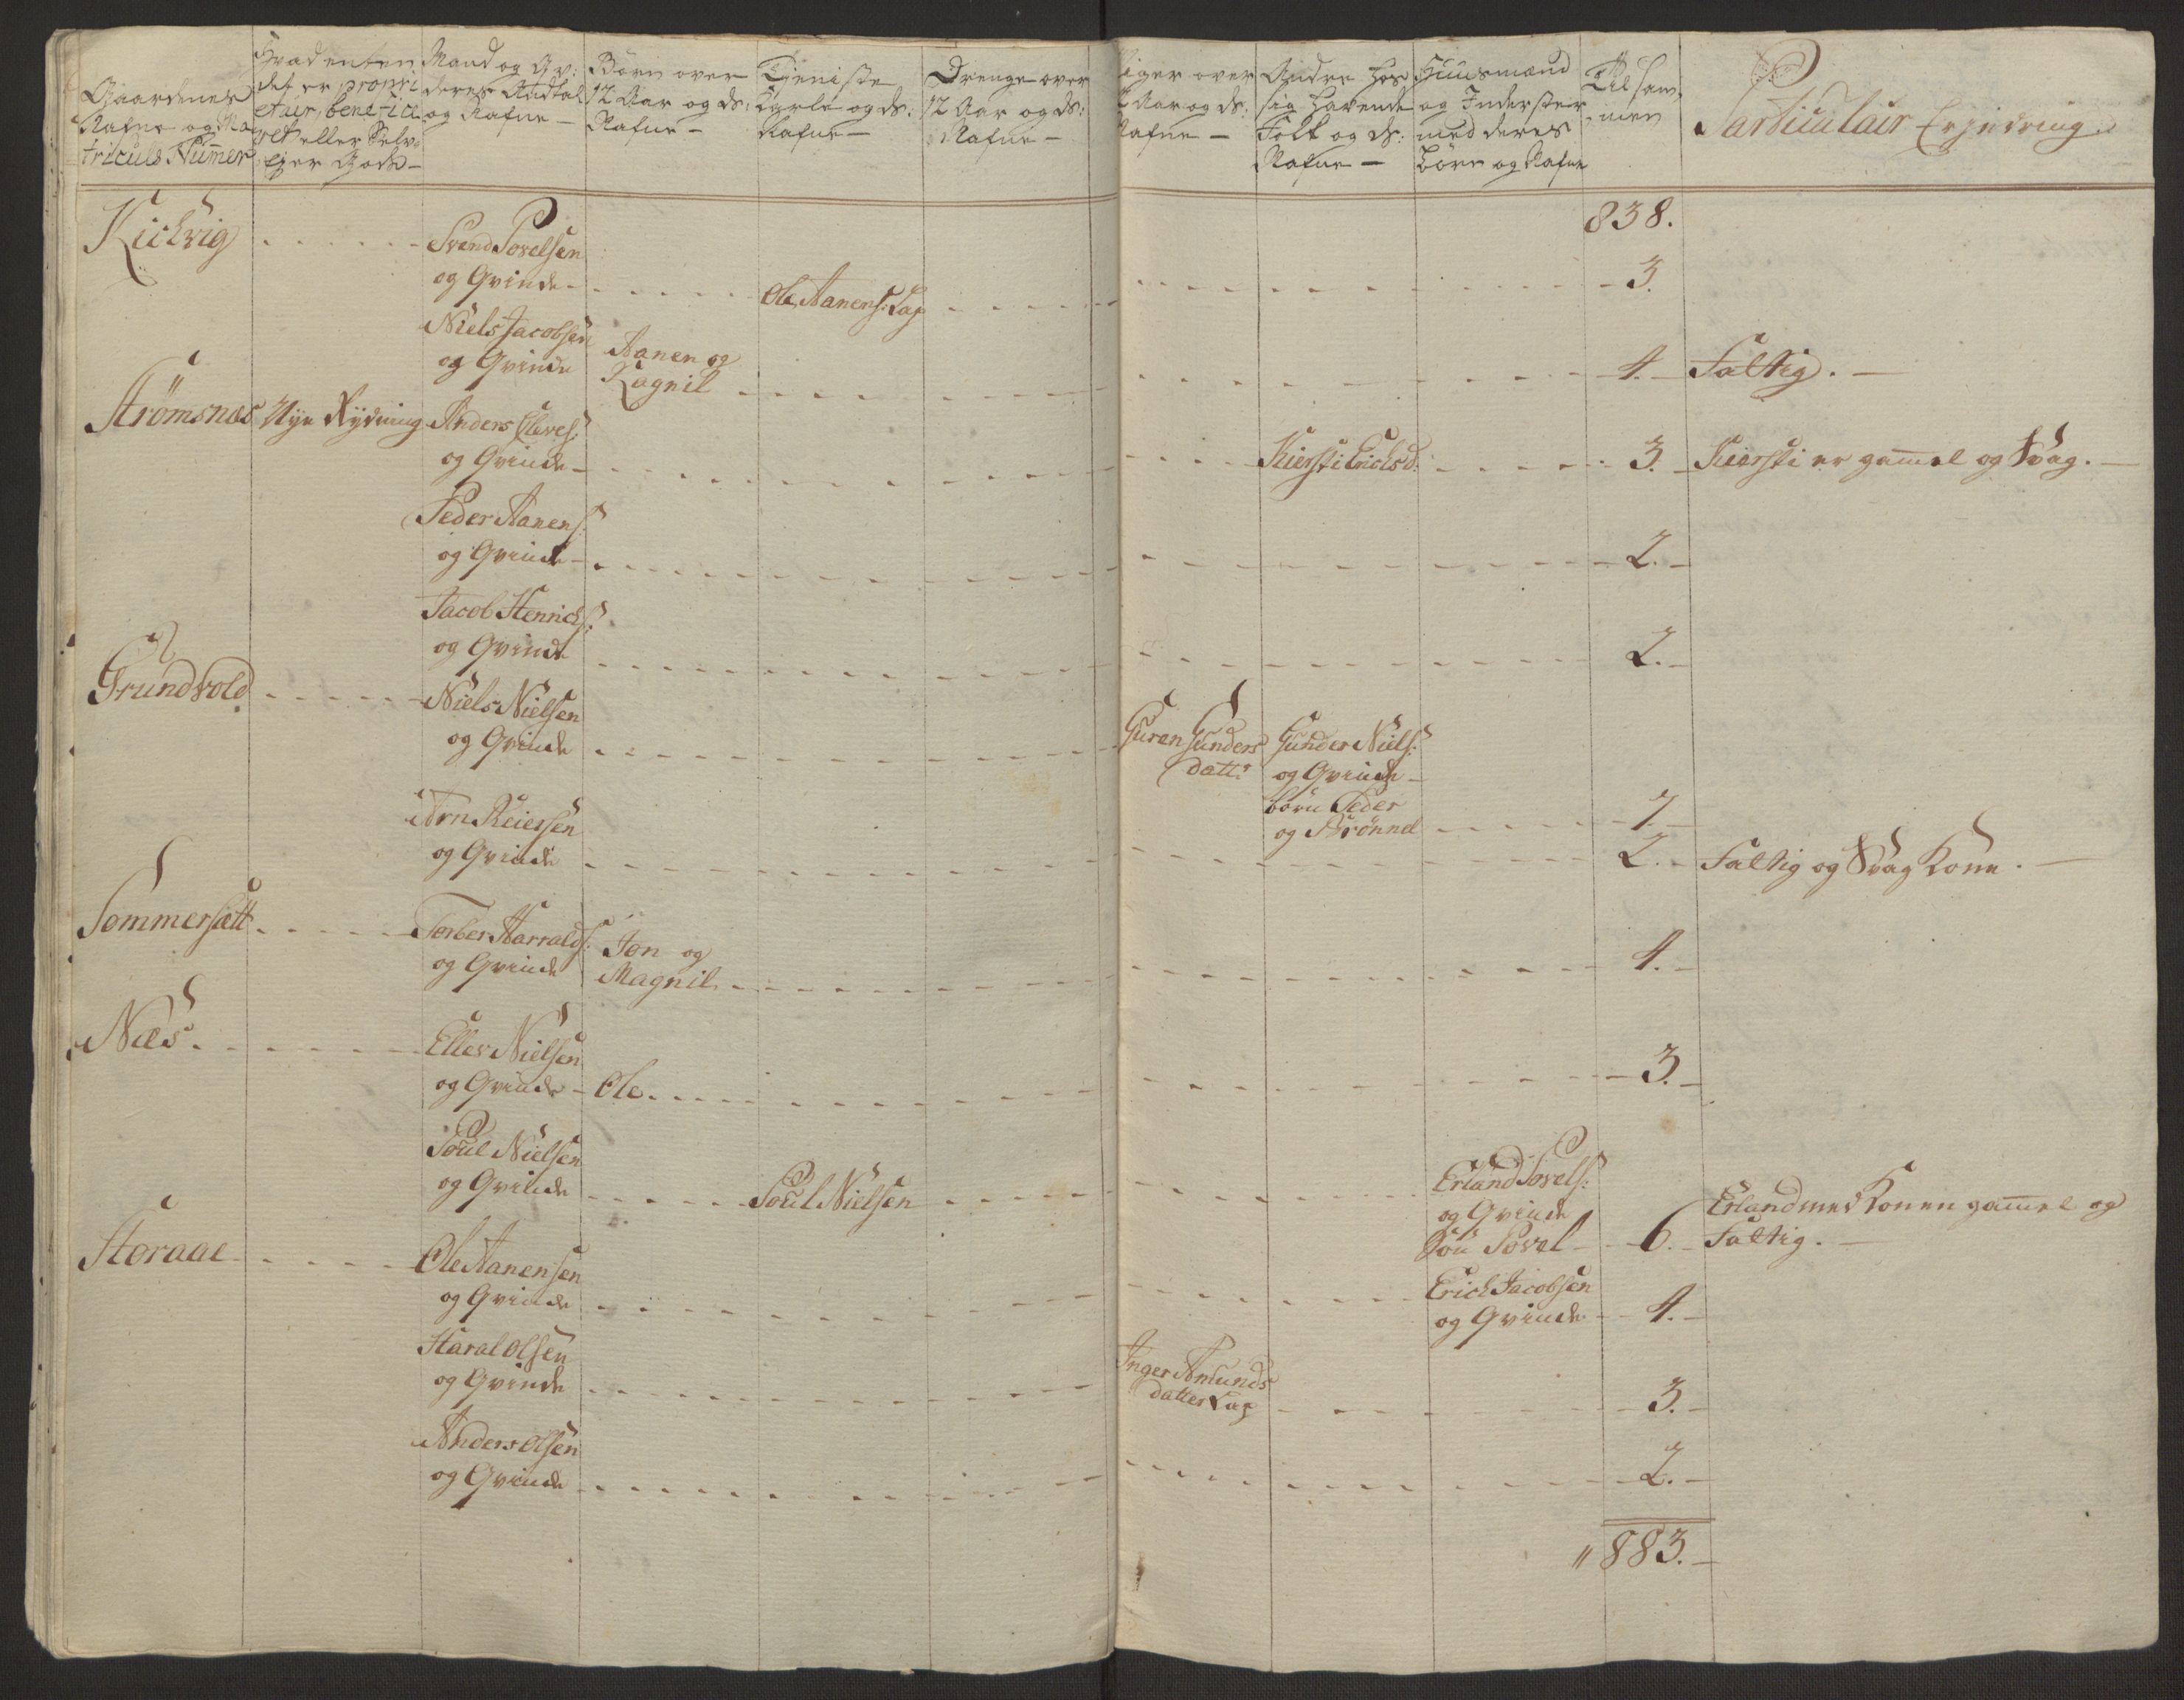 Gaardenes
Nafne og Ma-
triculs Nummer
Hvad enten
det er propri
etair, benefici
eret eller Selv-
Ejer Gods -
Mand og Qv:
deres Andtal
og Nafne -
Börn over
12 Aar og ds:
Nafne -
Tieniste
Karle og ds:
Nafne -
Drenge over
12 Aar og ds:
Nafne -
Piger over
12 Aar og ds:
Nafne -
Andre hos
sig havende
Folk og ds:
Nafne -
Huusmænd
og Inderster
med deres
Börn og Nafne
Til sam
men
Particulair Erindring
838.
Kichvig
Svend Povelsen
og Qvinde -
Ole Aanens: Lag
3.
Niels Jacobsen
og Qvinde
Aanen og
Ragnil
4. Fattig. -
Strömsnæs Nye Rydning Anders Oleves:
og Qvinde -
Kiersti Erichsd:
3. Kiersti er gamel og Svag. -
Peder Aanens:
og Qvinde -
2. -
Jacob Henrichs:
og Qvinde
2. -
Grundvold
Niels Nielsen
og Qvinde
Guren Gunders
datt:
Gunder Niels:
og Qvinde -
börn Peder
og Brönnel
7. -
Arn Reiersen
og Qvinde
2. - Fattig og Svag Kone. -
Sommersætt
Torber Harralds:
og Qvinde
Jon og
Magnil
4. -
Næs
Ellev Nielsen
og Qvinde - Ole
3. -
Poul Nielsen
og Qvinde
Poul Nielsen
Erland Povels:
og Qvinde
Sön Povel - 6. -
Erland med Konen gamel og
Fattig. -
Storaae
Ole Aanensen
og Qvinde
Erich Jacobsen
og Qvinde - 4. -
Haral Olsen
og Qvinde
Inger Amunds
datter Lag
3. -
Anders Olsen
og Qvinde
2. -
" 883. -